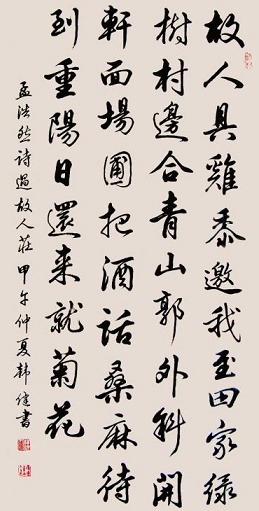 故人具雞黍邀我至田家綠
樹村邊合青山郭外斜開
軒面場圃把酒話桑麻待
到重陽日還来就菊花
孟浩然詩過故人莊甲午仲夏韓健書